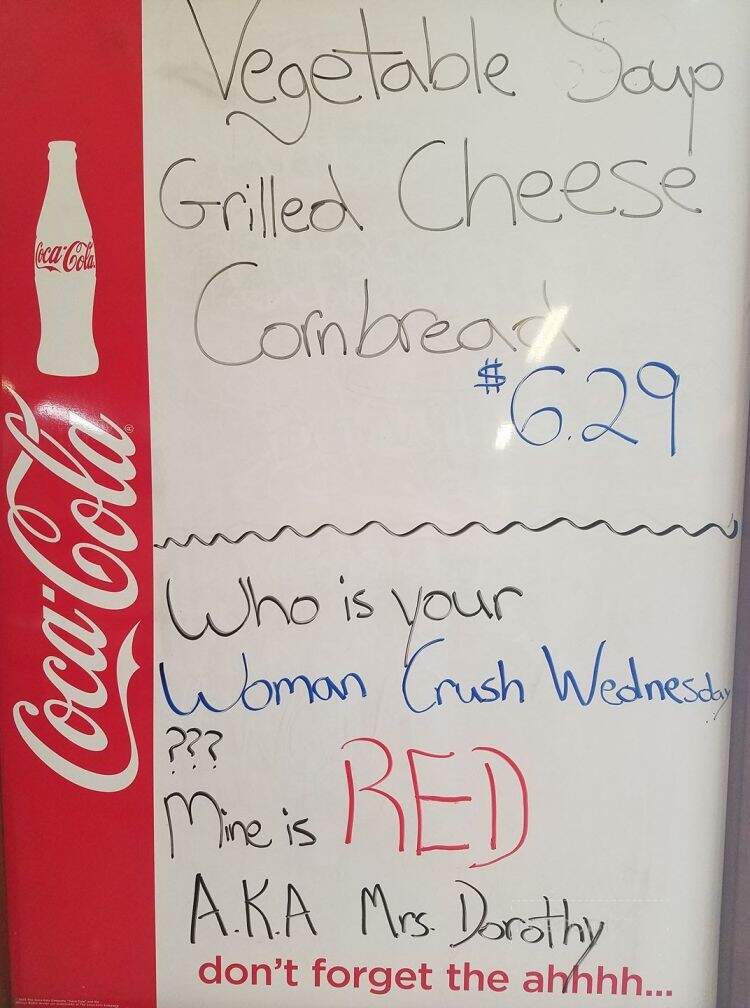 Vegetable Soup
Grilled Cheese
Cornbread
$6.29
Who is your
Woman Crush Wednesday
???
Mine is RED
A.K.A Mrs. Dorothy
don't forget the ahhhh...
Coca-Cola
Coca-Cola®